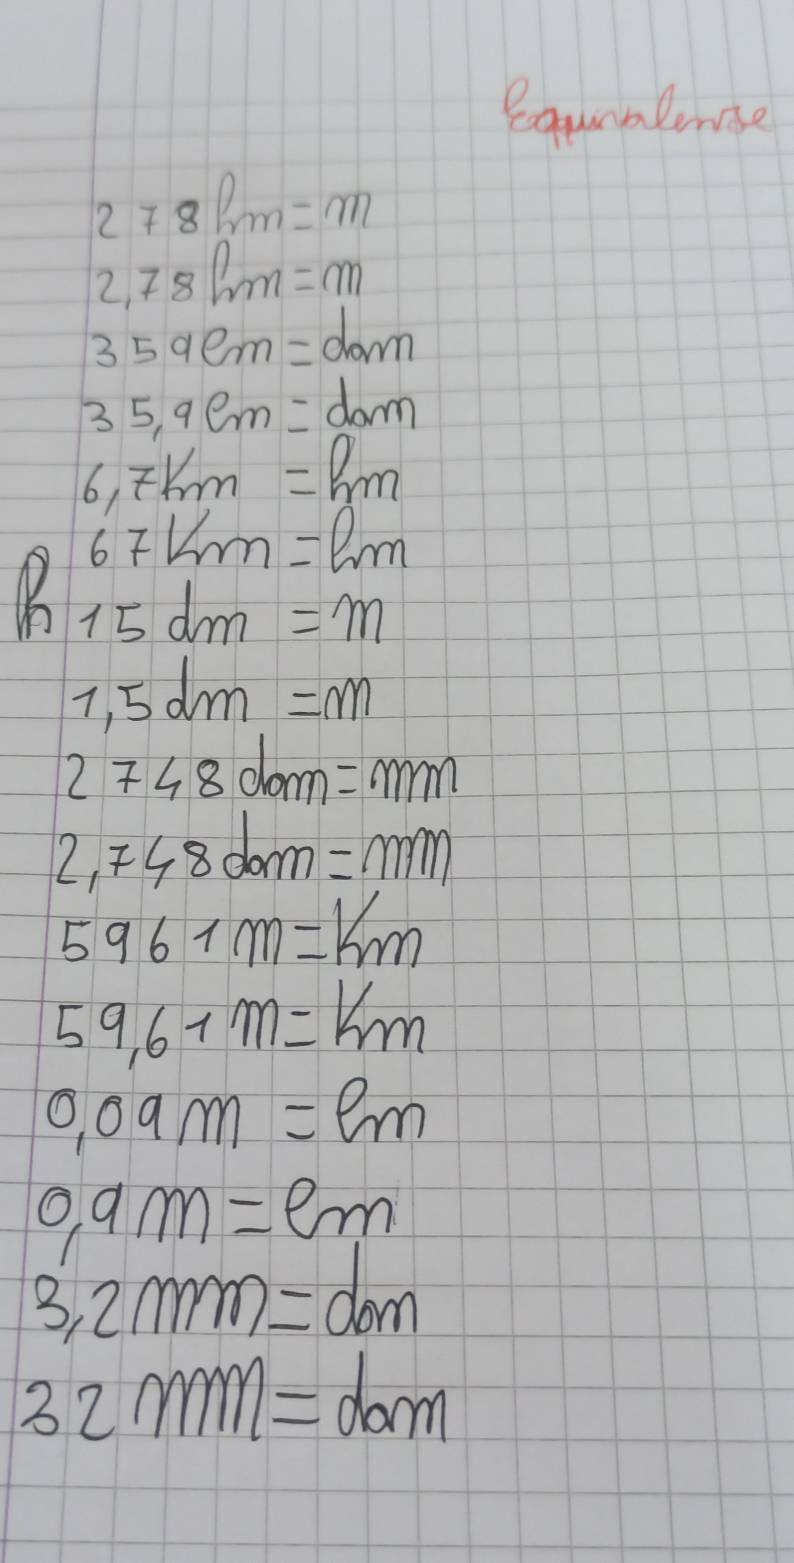 Equivalenze
278 hm = m
2,78 hm = m
359 cm = dam
35,9 cm = dam
6,7 Km = hm
67 Km = hm
h
15 dm = m
1,5 dm = m
2748 dam = mm
2,748 dam = mm
5961 m = Km
59,61 m = Km
0,09 m = cm
0,9 m = cm
3,2 mm = dam
32 mm = dam